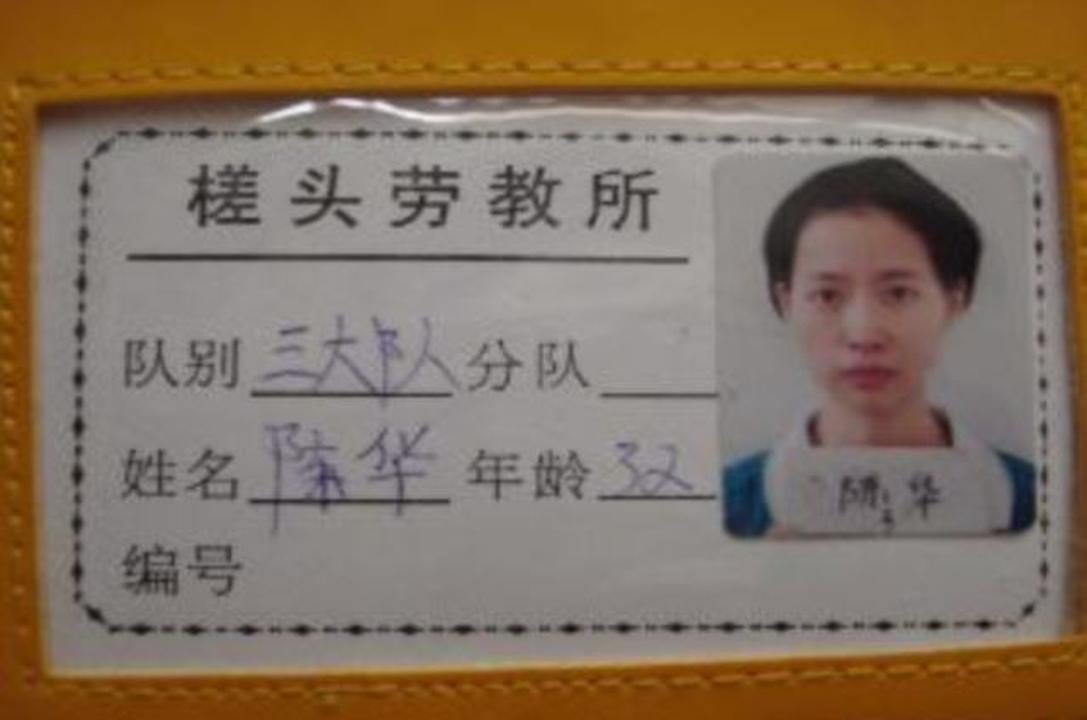 槎头劳教所
队别 三大队 分队
姓名 陈华 年龄 32
编号
陈华